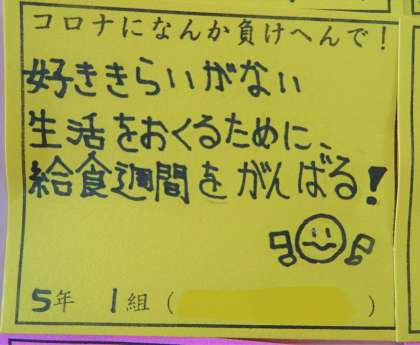 コロナになんか負けへんで!
好ききらいがない
生活をおくるために、
給食週間をがんばる!
5年 1組( )